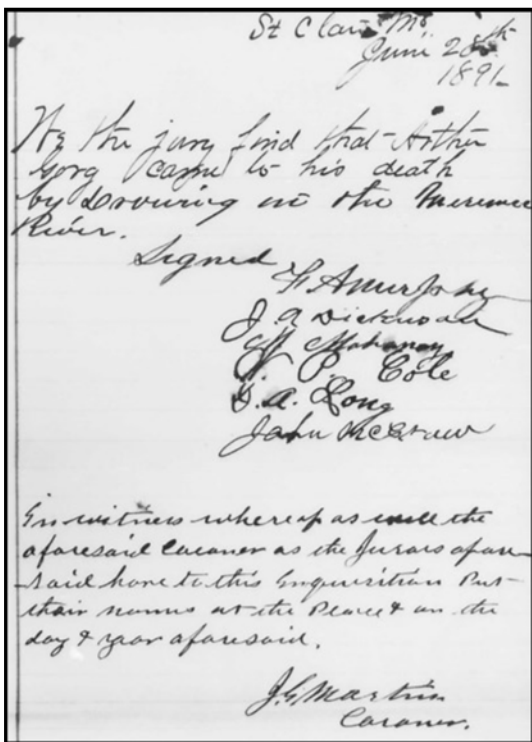 St Clair Mo.
June 28th
1891
We the jury find that Arther
Gorg came to his death
by Drouing in the Meremec
River.
Signed
F A Murphy
J. A. Dickinson
Mahaney
W P. Cole
G. A. Long
John McGraw
In witness whereof as well the
aforesaid Caroner as the Jurars afore
said have to this Inquisition Put
their names at the Place & on the
day & year aforesaid.
J. G. Martin
Caroner.